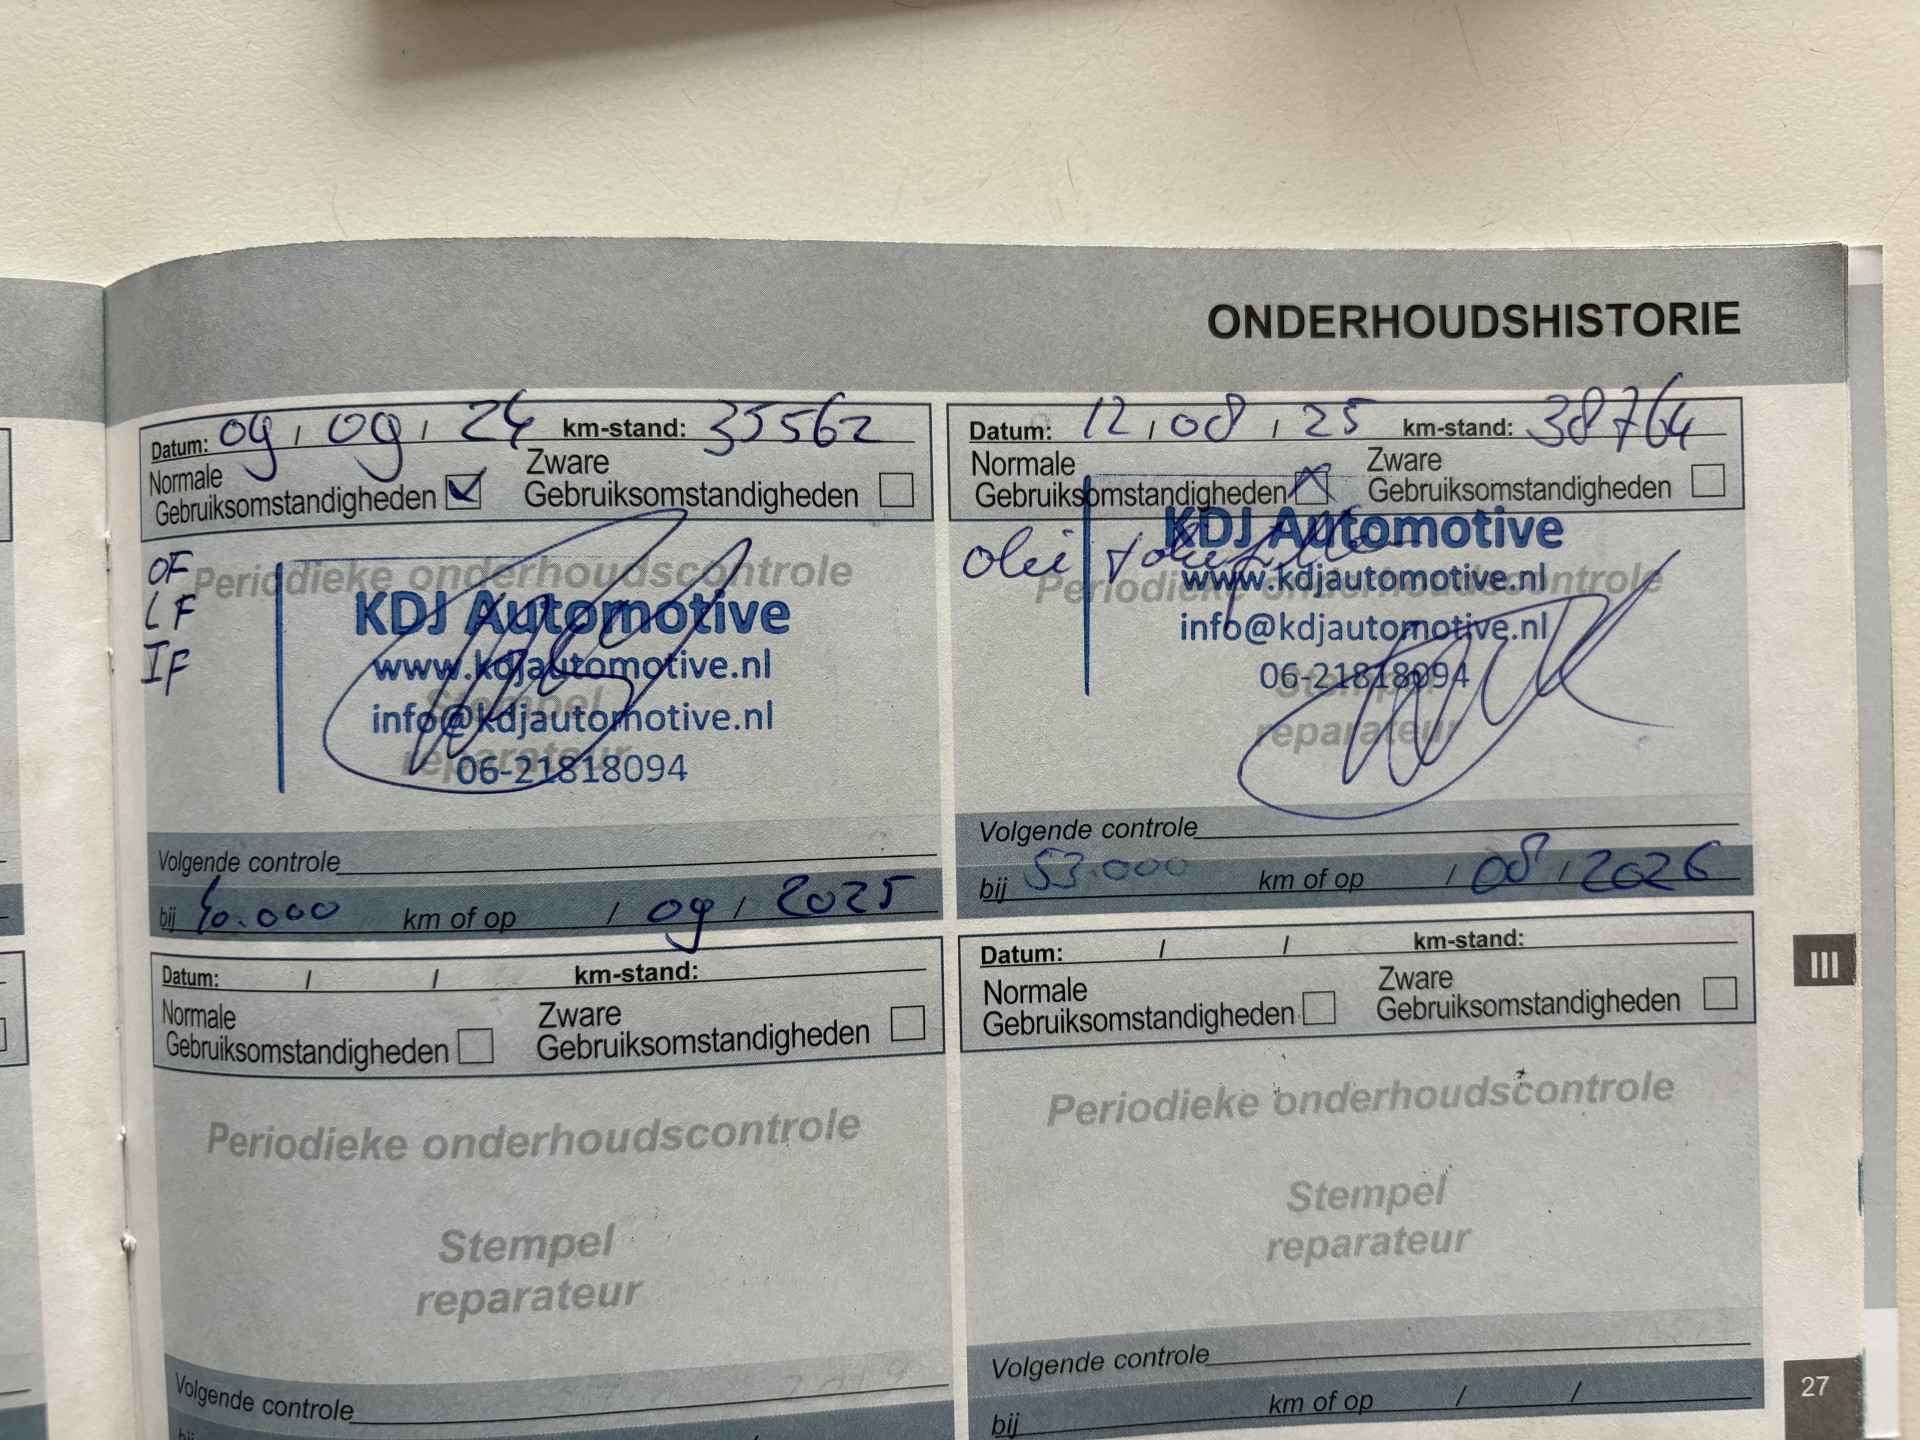 ONDERHOUDSHISTORIE
Datum: 09 / 09 / 24 km-stand: 35562
Normale
Gebruiksomstandigheden
Zware
Gebruiksomstandigheden
OF
LF
IF
Periodieke onderhoudscontrole
KDJ Automotive
www.kdjautomotive.nl
Stempel
info@kdjautomotive.nl
reparateur
06-21818094
Volgende controle
bij 40.000 km of op / 09 / 2025
Datum: 12 / 08 / 25 km-stand: 38764
Normale
Gebruiksomstandigheden
Zware
Gebruiksomstandigheden
KDJ Automotive
olie +
www.kdjautomotive.nl
Periodieke onderhoudscontrole
info@kdjautomotive.nl
06-21818094
Stempel
reparateur
Volgende controle
bij 53.000 km of op / 08 / 2026
Datum: / / km-stand:
Normale
Gebruiksomstandigheden
Zware
Gebruiksomstandigheden
Periodieke onderhoudscontrole
Stempel
reparateur
Volgende controle
bij
Datum: / / km-stand:
Normale
Gebruiksomstandigheden
Zware
Gebruiksomstandigheden
Periodieke onderhoudscontrole
Stempel
reparateur
Volgende controle
bij km of op / /
III
27